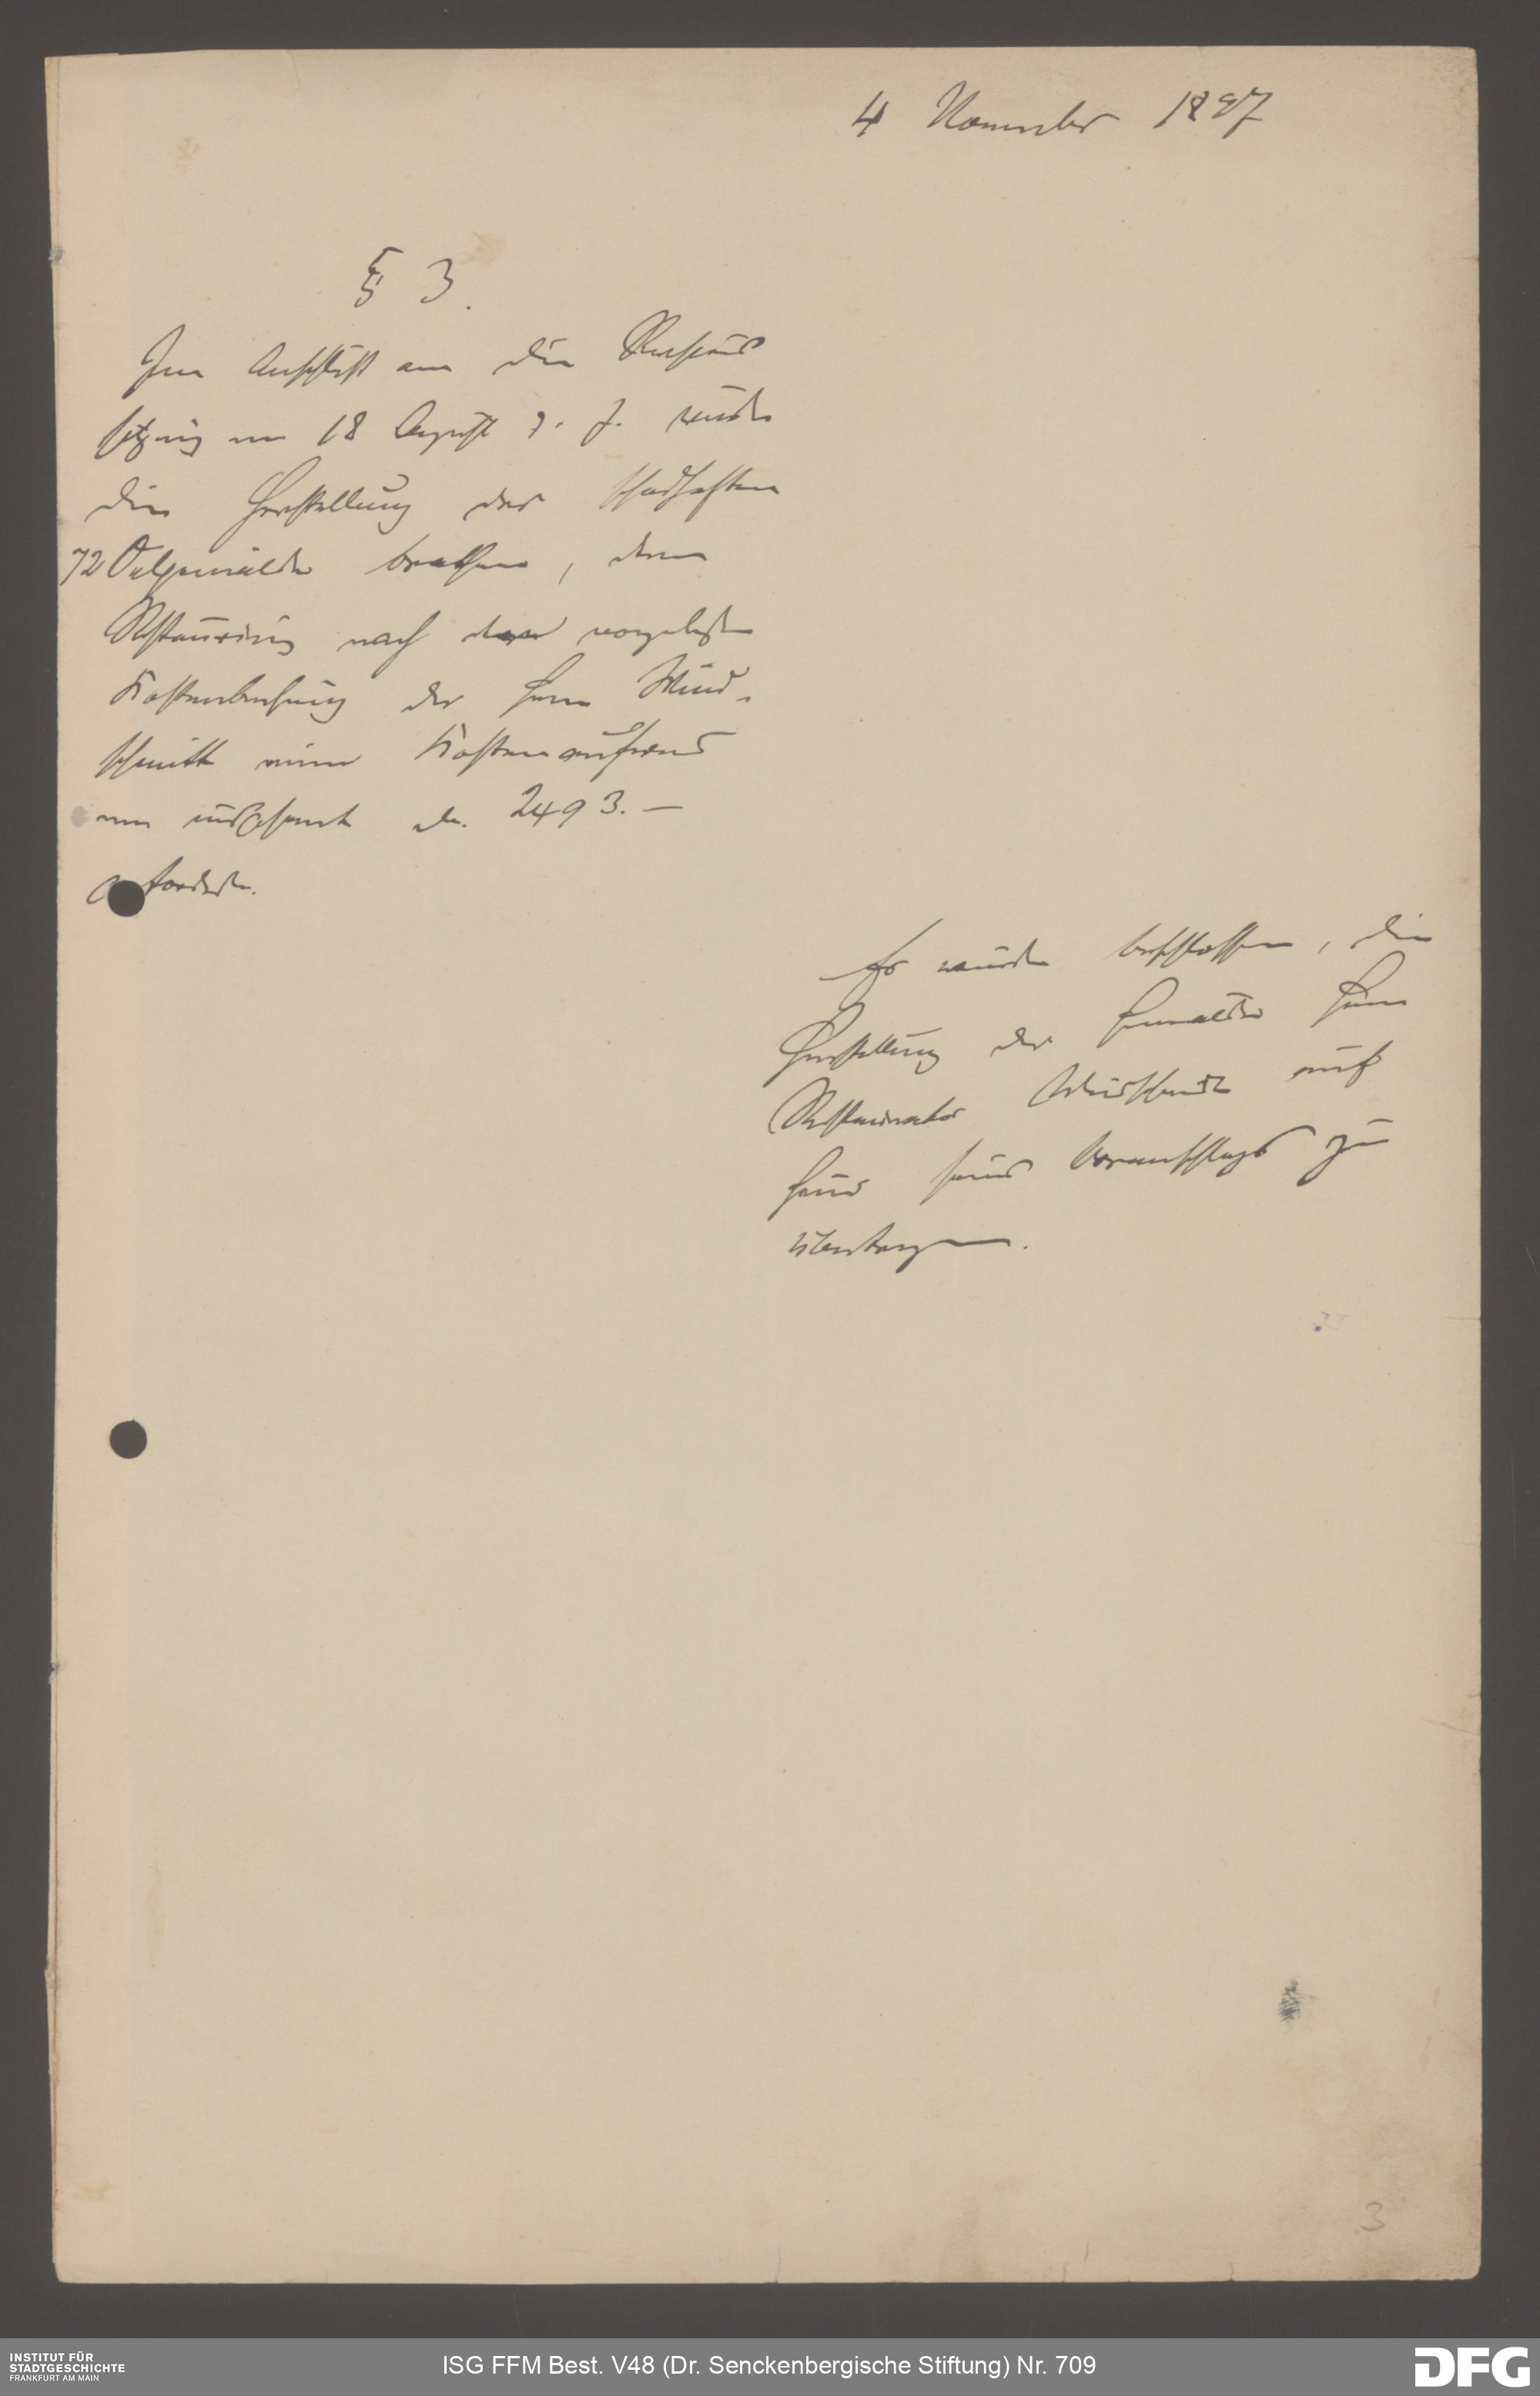 4 November 1897
§ 3.
Im Anschluß an die
Sitzung vom 18 August d. J. wurde
die Herstellung der schadhaften
72 Oelgemälde berathen, deren
Restaurirung nach der vorgelegten
Kostenberechnung des Herrn Wind-
schmitt einen Kostenaufwand
von insgesamt M. 2493.—
erfordert.
Es wurde beschlossen, die
Herstellung der Gemälde Herrn
Restaurator Windschmitt auf
Grund seines Voranschlags zu
übertragen.
3
INSTITUT FÜR
STADTGESCHICHTE
FRANKFURT AM MAIN
ISG FFM Best. V48 (Dr. Senckenbergische Stiftung) Nr. 709
DFG